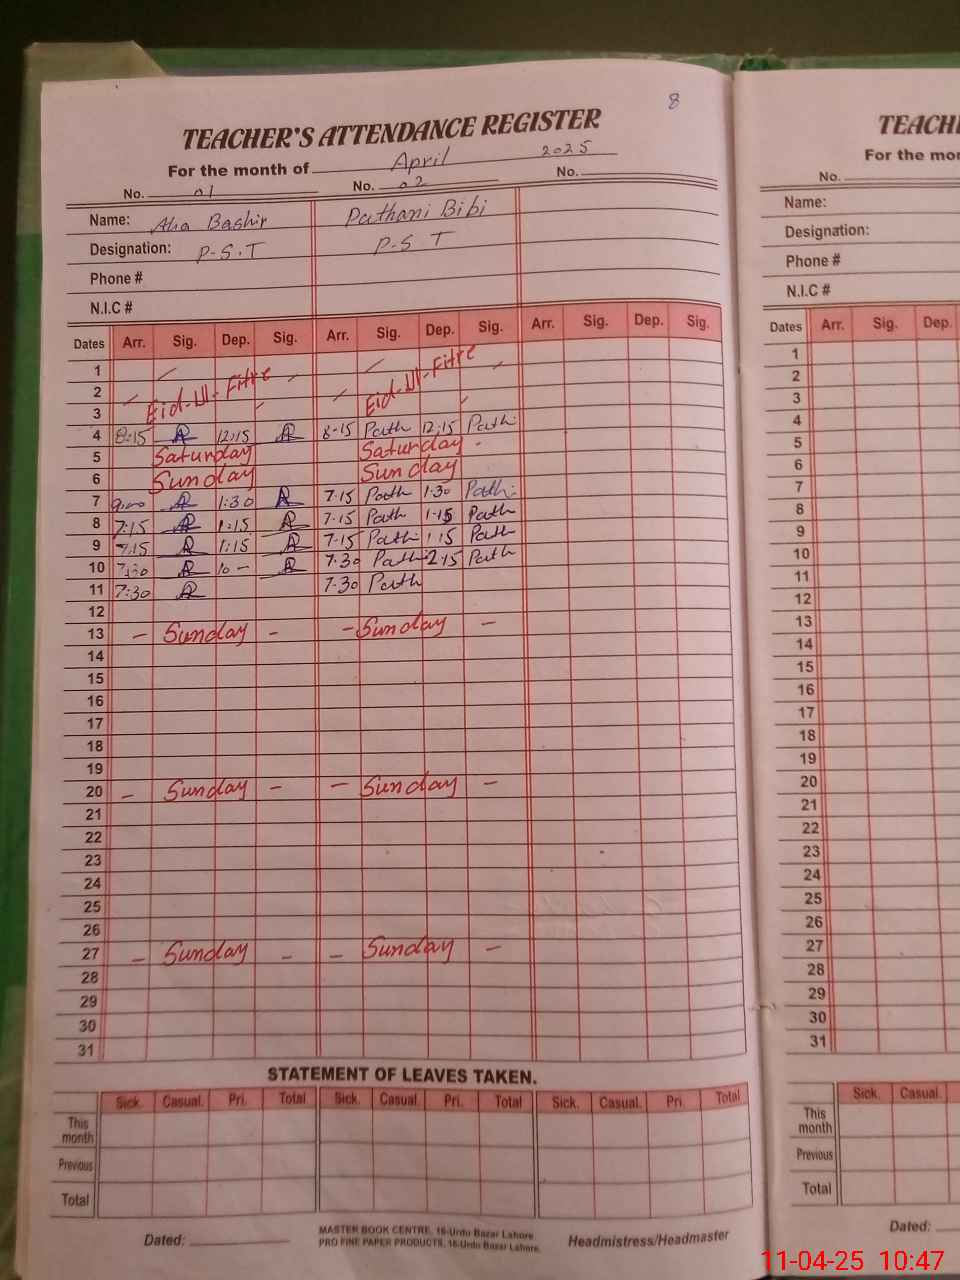 8
TEACHER'S ATTENDANCE REGISTER
For the month of April 2025
No. 01 No. 02 No.
Name: Bashir Pathani Bibi
Designation: P.S.T P.S T
Phone #
N.I.C #
Dates Arr. Sig. Dep. Sig. Arr. Sig. Dep. Sig. Arr. Sig. Dep. Sig.
1
2 Eid-Ul-Fitre Eid-Ul-Fitre
3
4 8:15 12:15 8-15 Path 12:15 Path
5 Saturday Saturday
6 Sunday Sunday
7 1:30 7.15 Path 1.30 Path
8 7:15 1:15 7.15 Path 1.15 Path
9 7:15 1:15 7.15 Path 1:15 Path
10 7:30 10 - 7.30 Path 2:15 Path
11 7:30 7.30 Path
12
13 - Sunday - - Sunday -
14
15
16
17
18
19
20 - Sunday - - Sunday -
21
22
23
24
25
26
27 - Sunday - - Sunday -
28
29
30
31
STATEMENT OF LEAVES TAKEN.
Sick. Casual. Pri. Total Sick. Casual. Pri. Total Sick. Casual. Pri. Total
This
month
Previous
Total
Dated:
MASTER BOOK CENTRE, 16-Urdu Bazar Lahore.
PRO FINE PAPER PRODUCTS, 16-Urdu Bazar Lahore.
Headmistress/Headmaster
TEACH
For the mo
No.
Name:
Designation:
Phone #
N.I.C #
Dates Arr. Sig. Dep.
1
2
3
4
5
6
7
8
9
10
11
12
13
14
15
16
17
18
19
20
21
22
23
24
25
26
27
28
29
30
31
Sick. Casual.
This
month
Previous
Total
Dated:
11-04-25 10:47